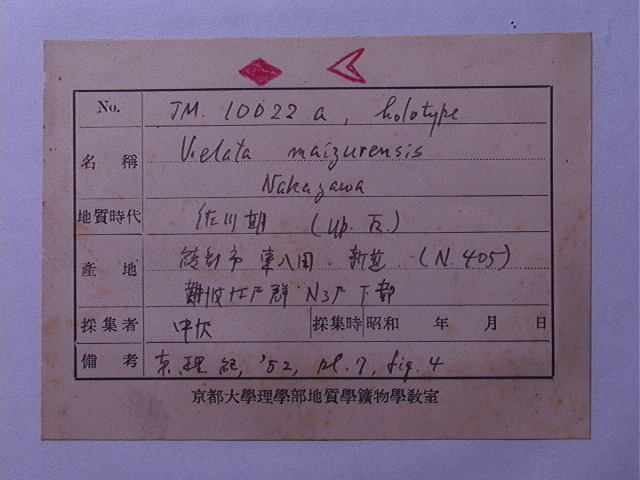 No. JM. 10022 a, holotype
名稱 Velata maizurensis
Nakazawa
地質時代 佐川期 (Up. T.)
產地 綾部市 東八田 (N. 405)
難波江層群 N3層 下部
採集者 中沢 採集時 昭和 年 月 日
備考 京理紀, '52, pl. 7, fig. 4
京都大學理學部地質學鑛物學敎室